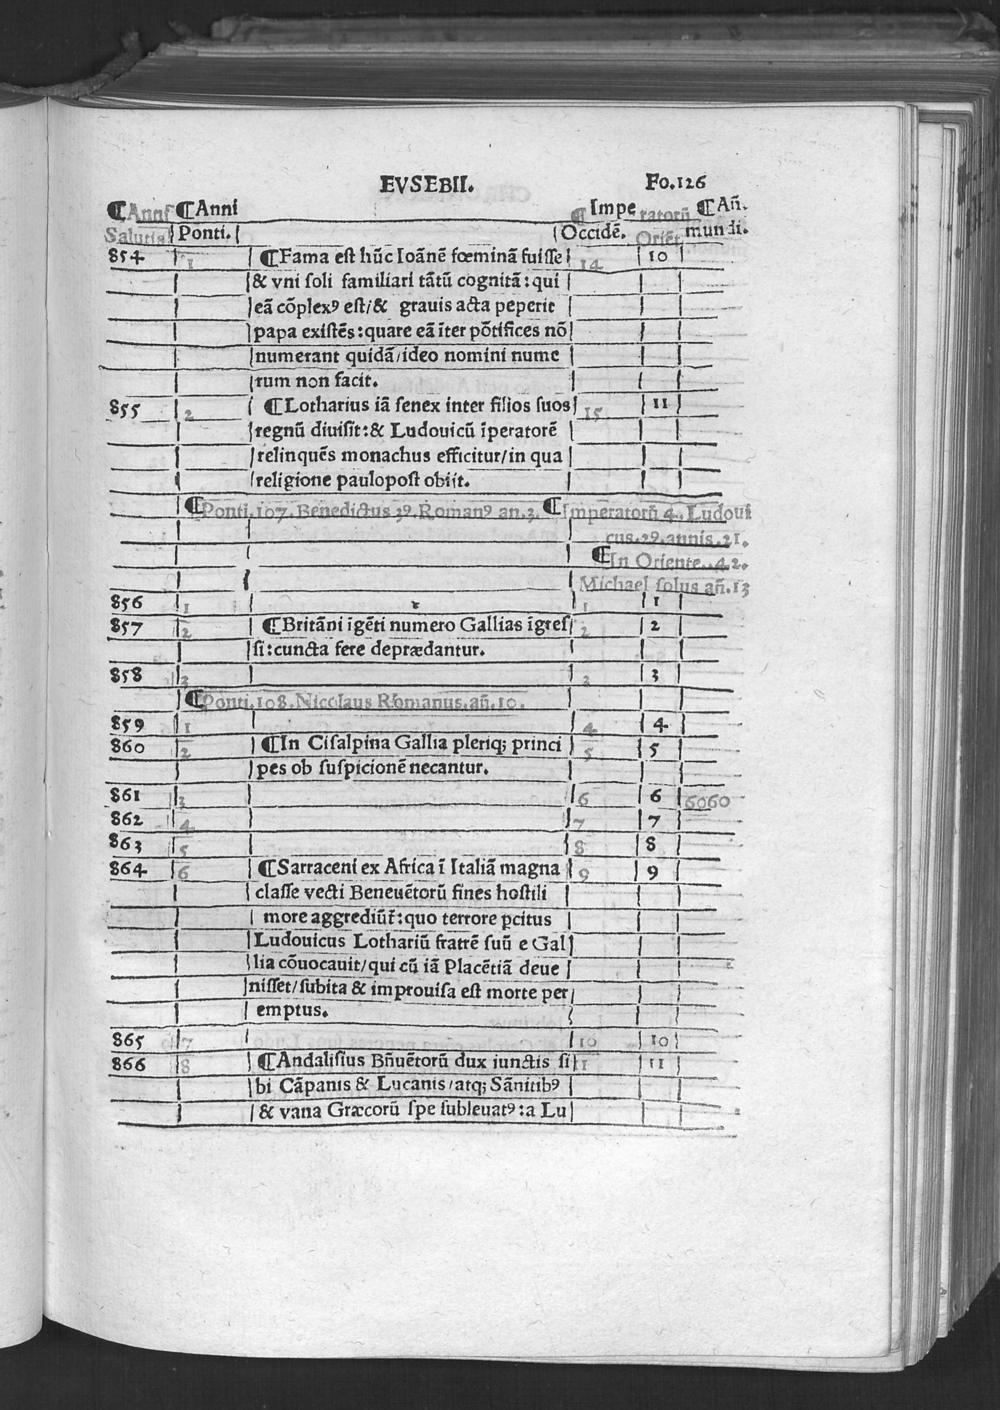 EVSEBII. Fo.126
¶Anni ¶Anni Imperatorũ ¶Añ.
Salutis Ponti. Occidẽ. Oriẽt mundi.
854 1 ¶Fama est hũc Ioãnẽ fœminã fuisse 14 10
& vni soli familiari tãtũ cognitã: qui
eã cõplexꝰ est/& grauis acta peperit
papa existẽs: quare eã ĩter põtifices nõ
numerant quidã/ideo nomini nume
rum non facit.
855 2 ¶Lotharius iã senex inter filios suos 15 11
regnũ diuisit: & Ludouicũ ĩperatorẽ
relinquẽs monachus efficitur/in qua
religione paulopost obijt.
¶Ponti.107.Benedictus 3ꝰ.Romanꝰ an.3. ¶Imperatorũ 4. Ludoui
cus.29.annis.21.
¶In Oriente..42.
Michael solus añ.13
856 1 1 1
857 2 ¶Britãni ĩgẽti numero Gallias ĩgres 2 2
si: cuncta fere deprædantur.
858 3 3 3
¶Ponti.108.Nicolaus Romanus.añ.10.
859 1 4 4
860 2 ¶In Cisalpina Gallia pleriqꝫ princi 5 5
pes ob suspicionẽ necantur.
861 3 6 6 6060
862 4 7 7
863 5 8 8
864 6 ¶Sarraceni ex Africa ĩ Italiã magna 9 9
classe vecti Beneuẽtorũ fines hostili
more aggrediũt̃: quo terrore pcitus
Ludouicus Lothariũ fratrẽ suũ e Gal
lia cõuocauit/qui cũ iã Placẽtiã deue
nisset/subita & improuisa est morte per
emptus.
865 7 10 10
866 8 ¶Andalisius Bñuẽtorũ dux iunctis si 11 11
bi Cãpanis & Lucanis/atqꝫ Sãnitibꝰ
& vana Græcorũ spe subleuatꝰ: a Lu